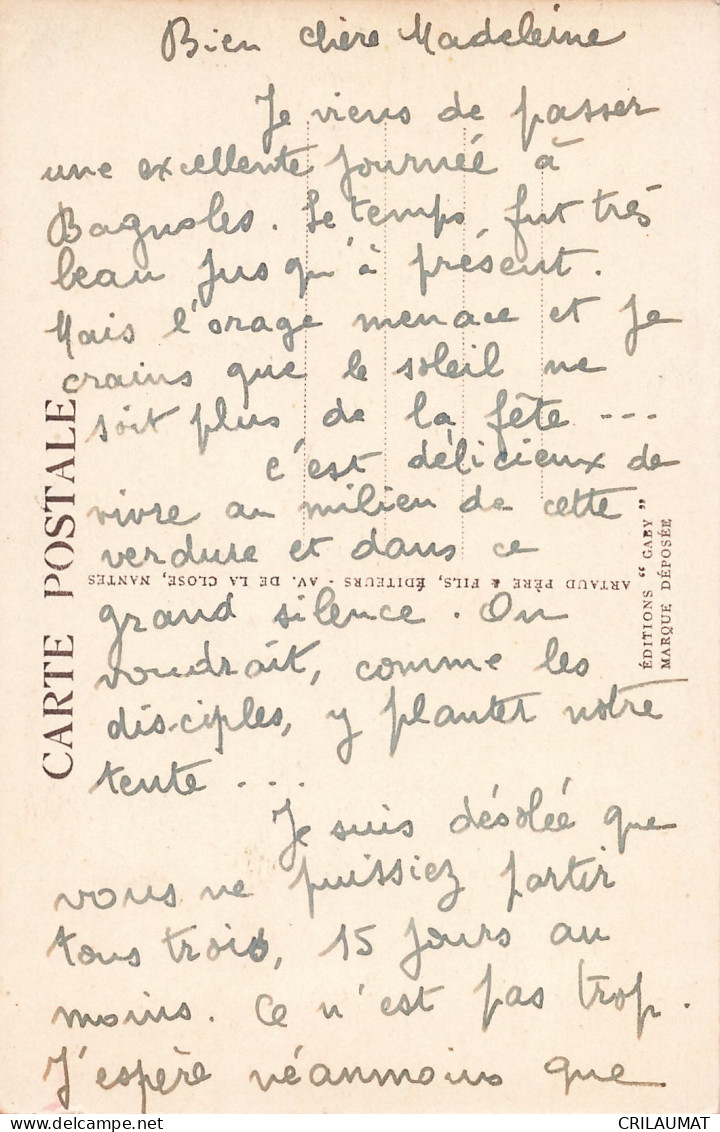 Bien chère Madeleine
Je viens de passer
une excellente journée à
Bagnoles. Le temps fut très
beau jusqu'à présent.
Mais l'orage menace et je
crains que le soleil ne
soit plus de la fête ---
c'est délicieux de
vivre au milieu de cette
verdure et dans ce
grand silence. On
voudrait, comme les
disciples, y planter notre
tente ....
Je suis désolée que
vous ne puissiez partir
tous trois, 15 jours au
moins. Ce n'est pas trop.
J'espère néanmoins que
CARTE POSTALE
ARTAUD PÈRE & FILS, ÉDITEURS - AV. DE LA CLOSE, NANTES
ÉDITIONS "GABY"
MARQUE DÉPOSÉE
CRILAUMAT